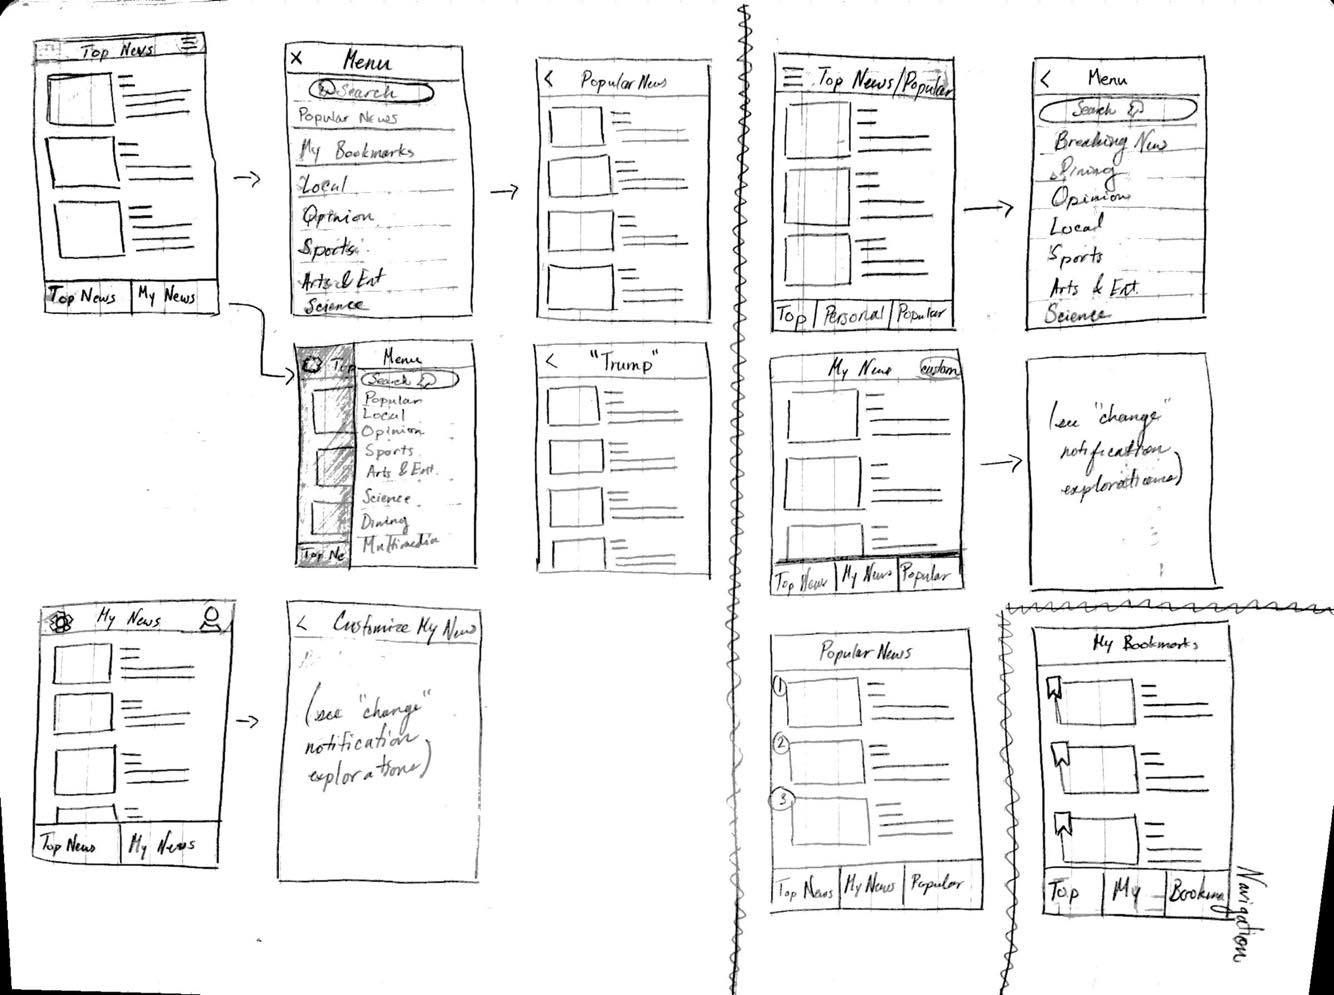 Top News
Top News
My News
X Menu
Search
Popular News
My Bookmarks
Local
Opinion
Sports
Arts & Ent
Science
< Popular News
Top
Menu
Search
Popular
Local
Opinion
Sports
Arts & Ent.
Science
Dining
Multimedia
Top Ne
< "Trump"
My News
Top News
My News
< Customize My News
(see "change"
notification
explorations)
Top News/Popular
Top
Personal
Popular
< Menu
Search
Breaking New
Dining
Opinion
Local
Sports
Arts & Ent.
Science
My News
custom
Top News
My News
Popular
(see "change"
notification
explorations)
Popular News
1
2
3
Top News
My News
Popular
My Bookmarks
Top
My
Bookma
Navigation